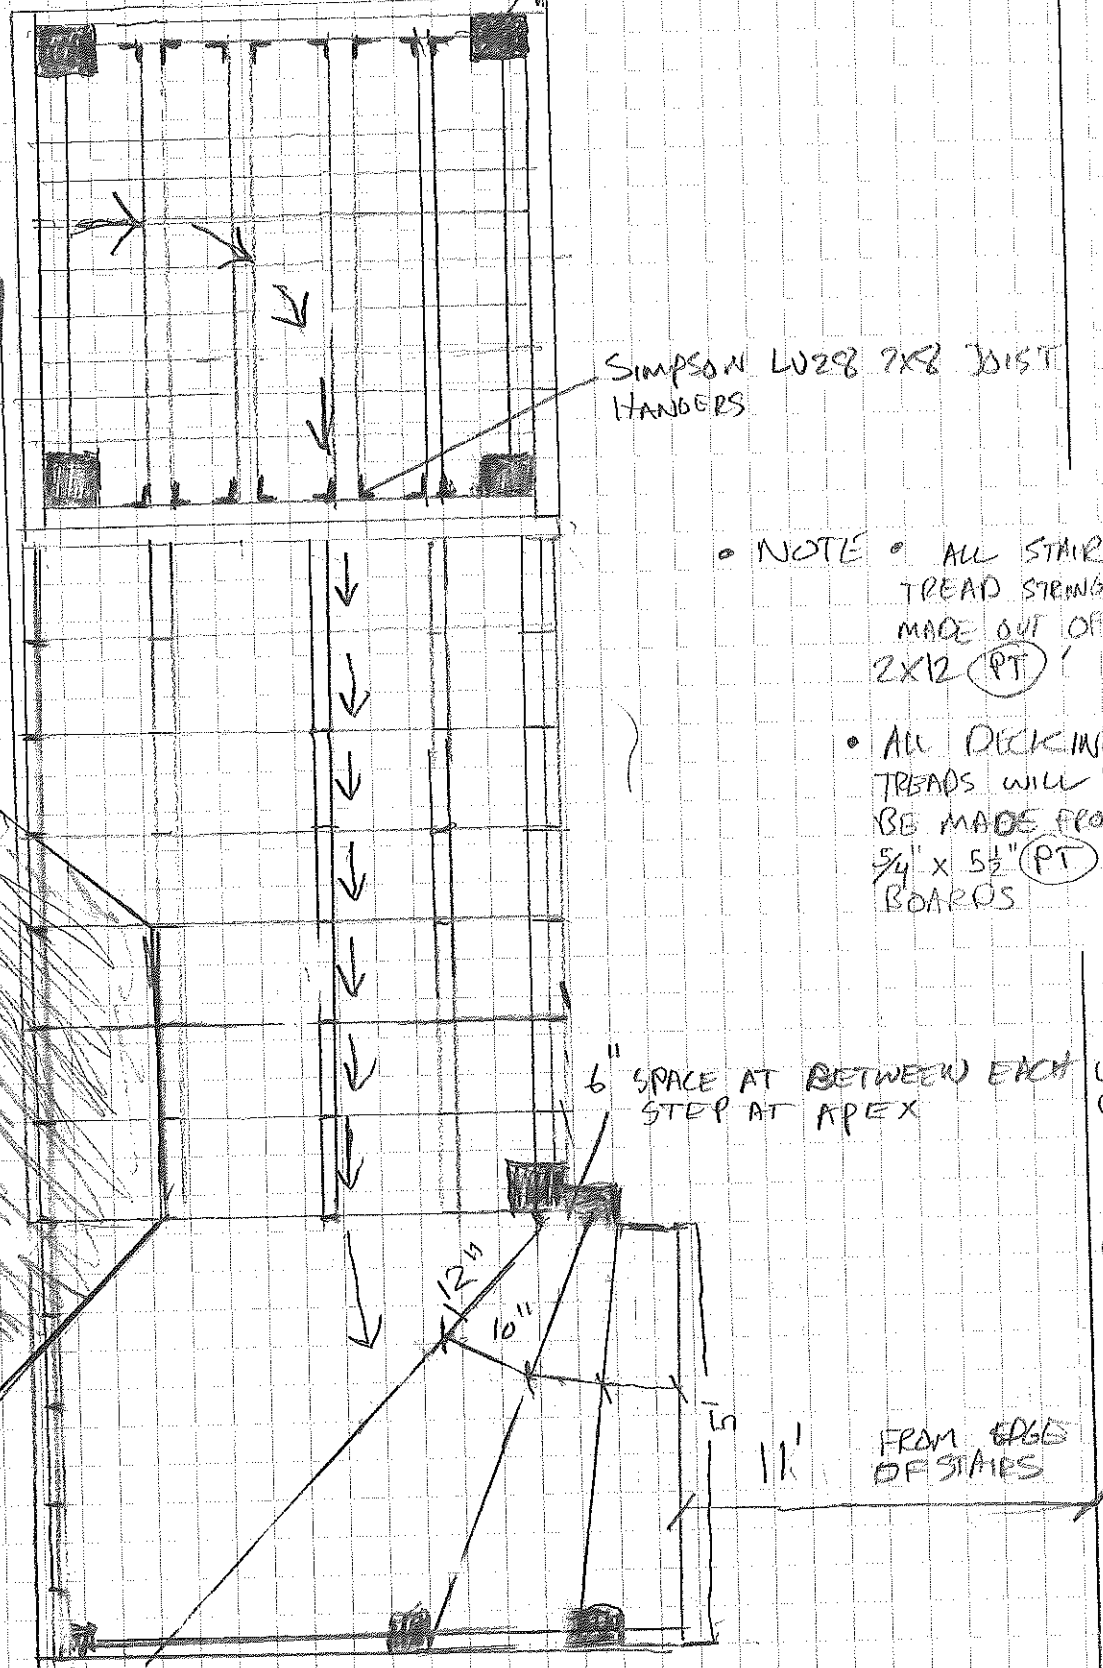 SIMPSON LU28 2X8 JOIST
HANGERS
• NOTE • ALL STAIR
TREAD STRING
MADE OUT OF
2X12 PT !
• ALL DECKIN
TREADS WILL
BE MADE FRO
5/4" X 5½" PT
BOARDS
6" SPACE AT BETWEEN EACH
STEP AT APEX
12"
10"
5
11'
FROM EDGE
OF STAIRS